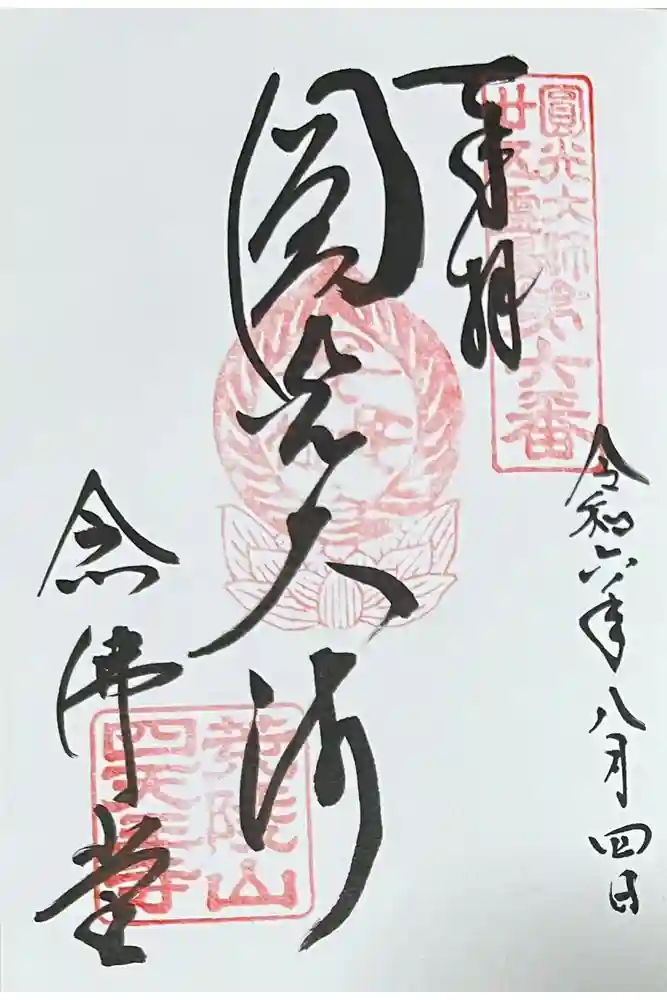 奉拝
圓光大師
廿五霊場第六番
令和六年八月四日
圓光大師
念佛堂
荒陵山
四天王寺